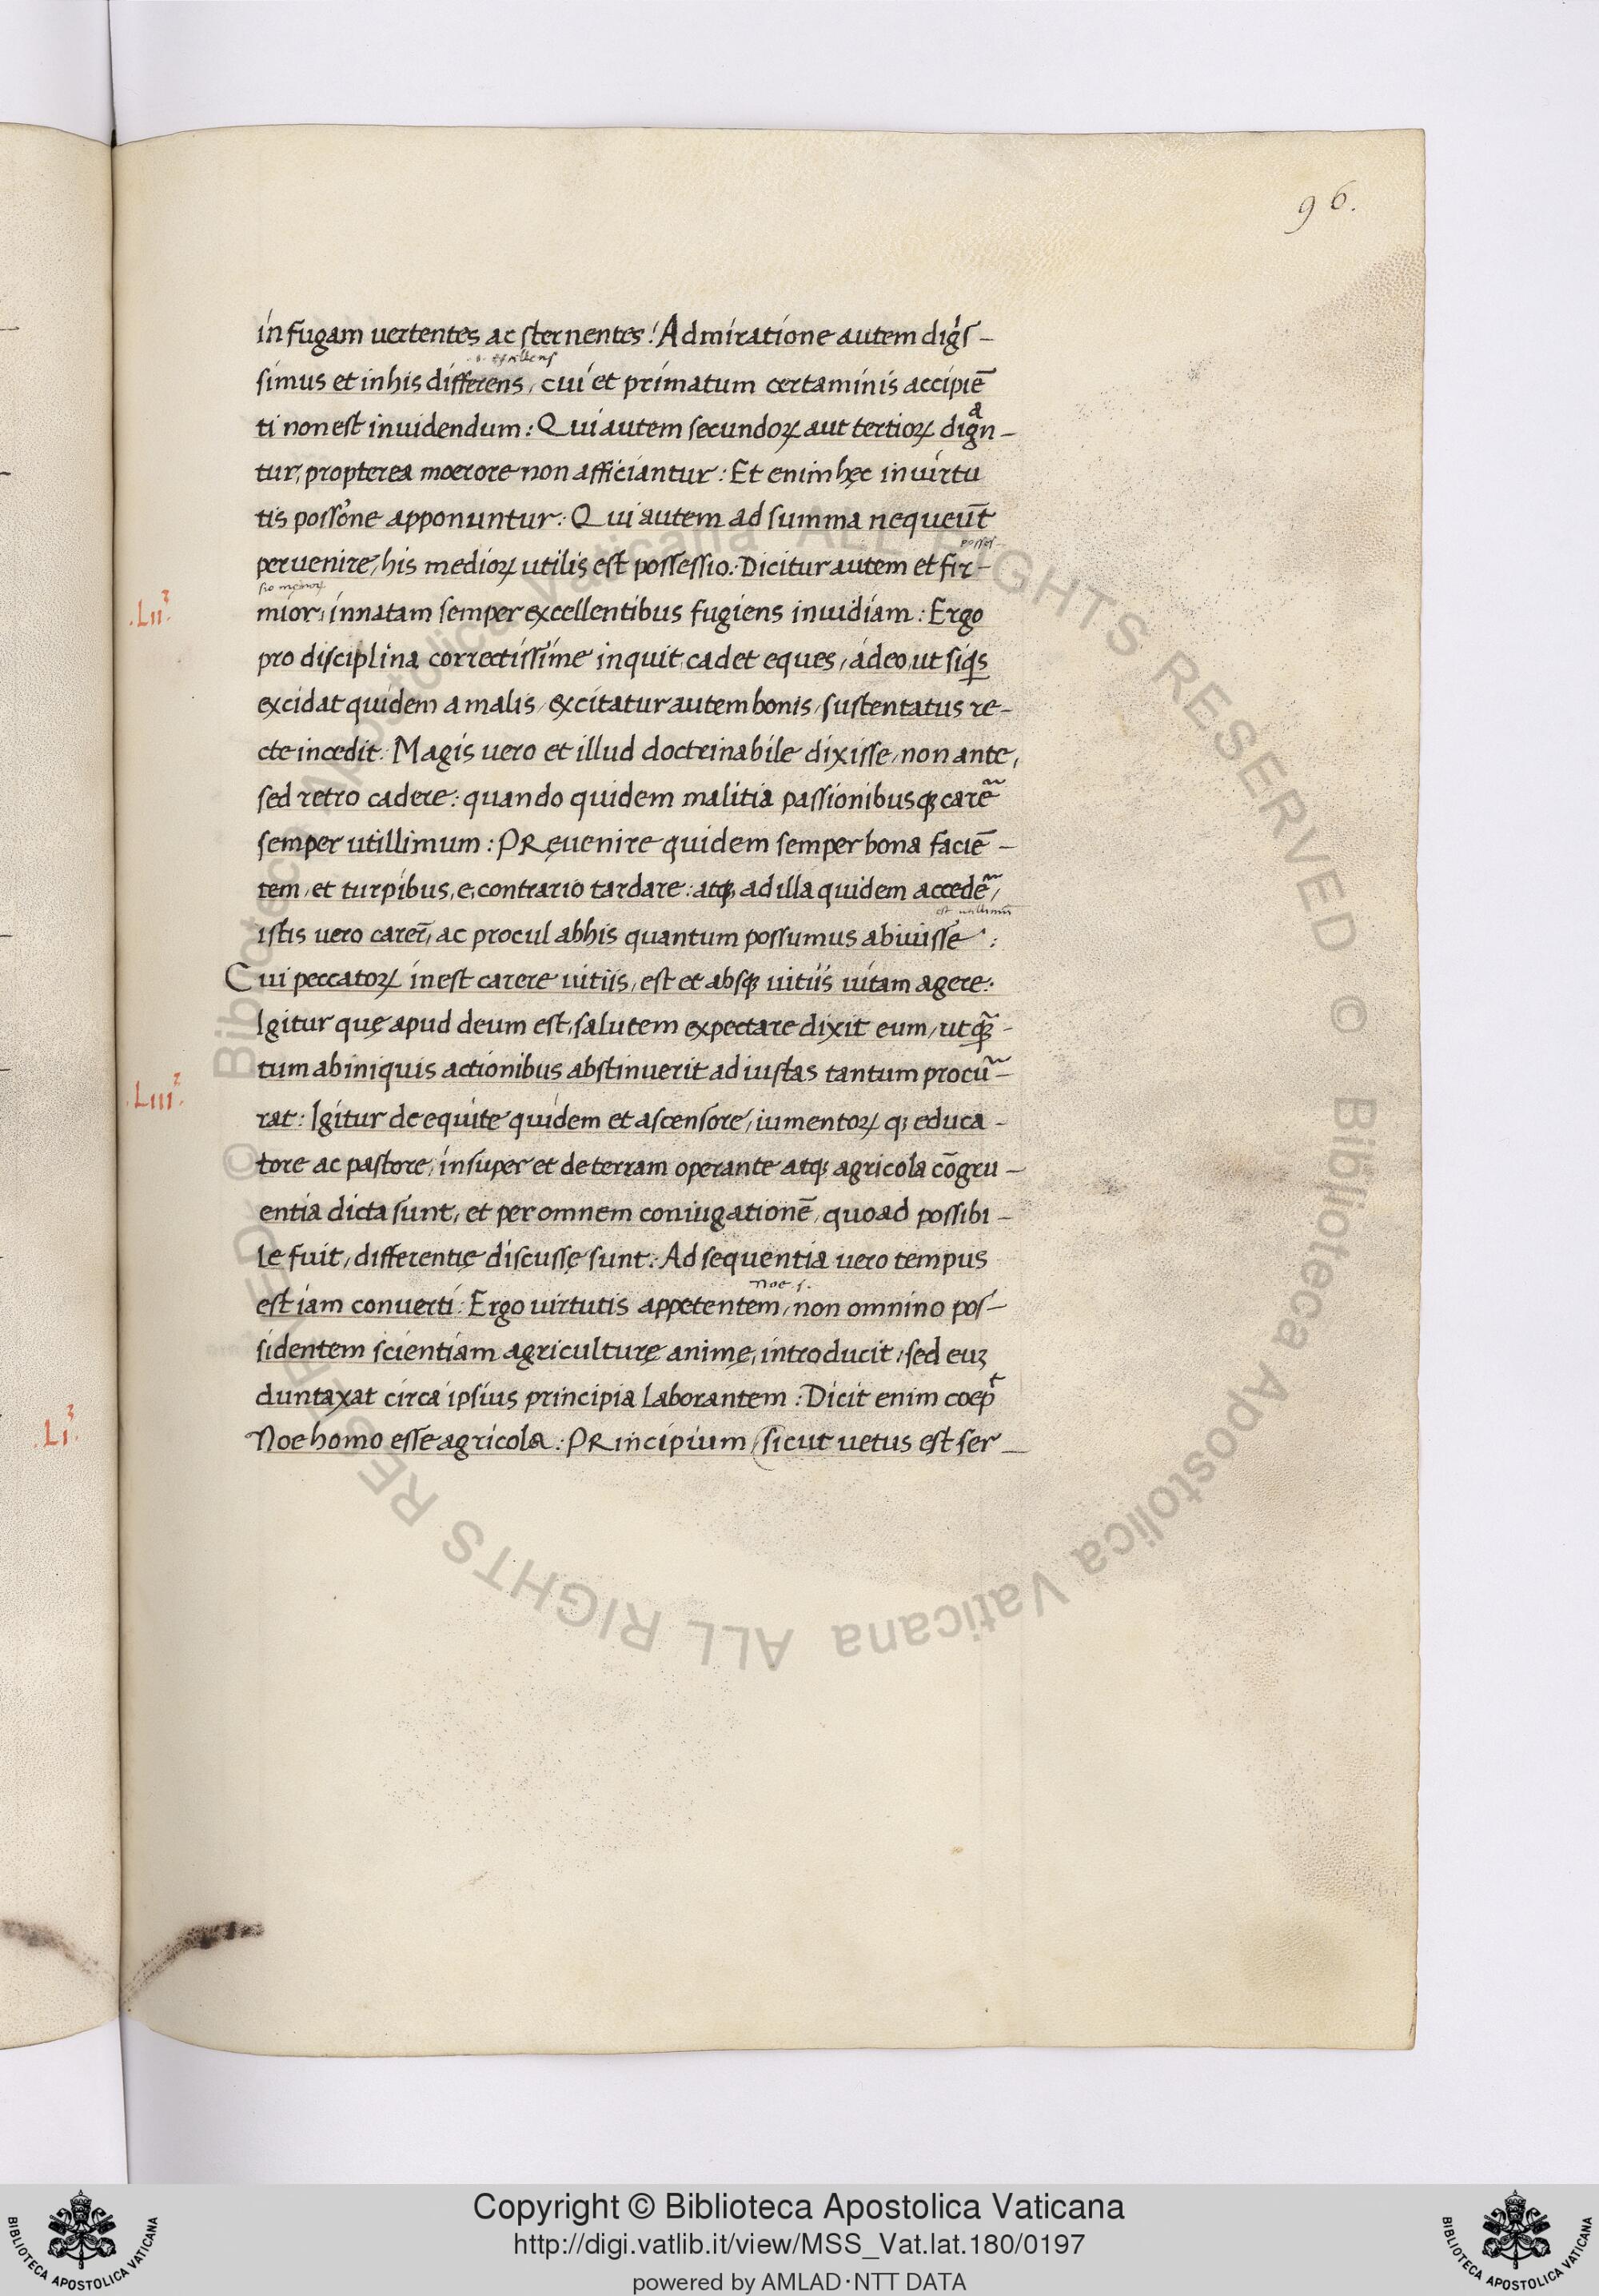 96.
in fugam uertentes ac sternentes! Admiratione autem dig̍s-
.s. excellens
simus et in his differens, cui et primatum certaminis accipiē
ti non est inuidendum: Qui autem secundoꝝ aut tertioꝝ dignᵃ-
tur, propterea moerore non afficiantur: Et enim hęc in uirtu
tis possōne apponuntur: Qui autem ad summa nequeūt
posses-
peruenire, his medioꝝ utilis est possessio: Dicitur autem et fir-
sio medioꝝ
.Lii². mior, innatam semper excellentibus fugiens inuidiam: Ergo
pro disciplina correctissime inquit, cadet eques, ádeo, ut siq̍s
excidat quidem a malis, excitatur autem bonis, sustentatus re-
cte incedit. Magis uero et illud doctrinabile dixisse, non ante,
sed retro cadere: quando quidem malitia passionibusqꝫ carē̃
semper utillimum: PRęuenire quidem semper bona faciē-
tem, et turpibus, e, contrario tardare: atqꝫ ad illa quidem accedē̃,
est utillimū
istis uero carer̄, ac procul ab his quantum possumus abiuisse:
Cui peccatoꝝ inest carere uitiis, est et absqꝫ uitiis uitam agere:
Igitur quę apud deum est, salutem expectare dixit eum, ut qꝫ̃-
.Liii². tum ab iniquis actionibus abstinuerit ad iustas tantum procū̃-
rat: Igitur de equite quidem et ascensore, iumentoꝝ qꝫ educa-
tore ac pastore, insuper et de terram operante atqꝫ agricola cōgru-
entia dicta sunt, et per omnem coniugationē, quoad possibi-
le fuit, differentię discussę sunt: Ad sequentia uero tempus
noe s.
est iam conuerti: Ergo uirtutis appetentem, non omnino pos-
sidentem scientiam agriculturę animę, introducit, sed euꝫ
duntaxat circa ipsius principia laborantem: Dicit enim coepᵗ
.Li³. Noe homo esse agricola: PRincipium, (sicut uetus est ser-
Copyright © Biblioteca Apostolica Vaticana
http://digi.vatlib.it/view/MSS_Vat.lat.180/0197
powered by AMLAD·NTT DATA
© Biblioteca Apostolica Vaticana ALL RIGHTS RESERVED © Biblioteca Apostolica Vaticana ALL RIGHTS RESERVED
BIBLIOTECA APOSTOLICA VATICANA
BIBLIOTECA APOSTOLICA VATICANA